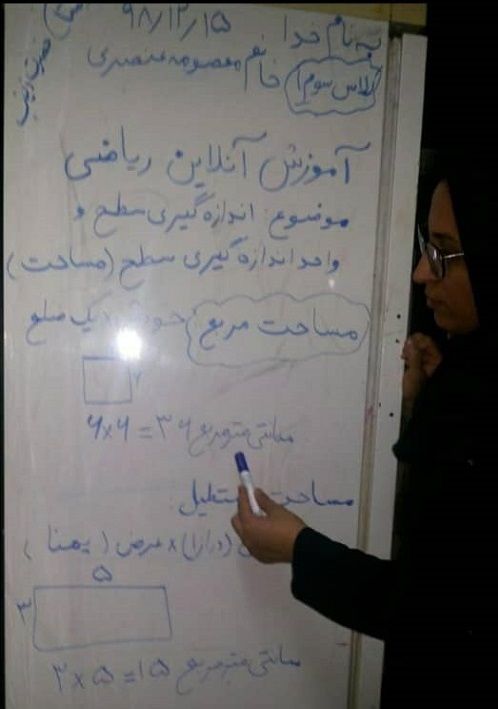 به نام خدا ۹۸/۱۲/۱۵
کلاس سوم ۱ خانم معصومه عنصری
آموزش آنلاین ریاضی
موضوع: اندازه گیری سطح و
واحد اندازه گیری سطح (مساحت)
مساحت مربع یک ضلع
۶×۶ = ۳۶ سانتی متر مربع
مساحت مستطیل:
(درازا) × عرض (پهنا)
۵
۳
۳×۵=۱۵ سانتی متر مربع